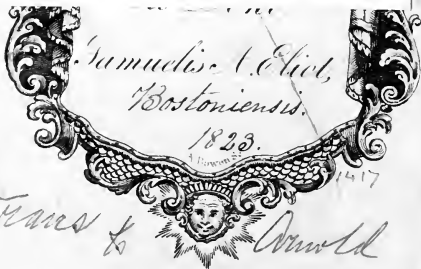 Samuelis A. Eliot,
Bostoniensis.
1823.
A. Bowen Sc.
1417
Trans to Arnold